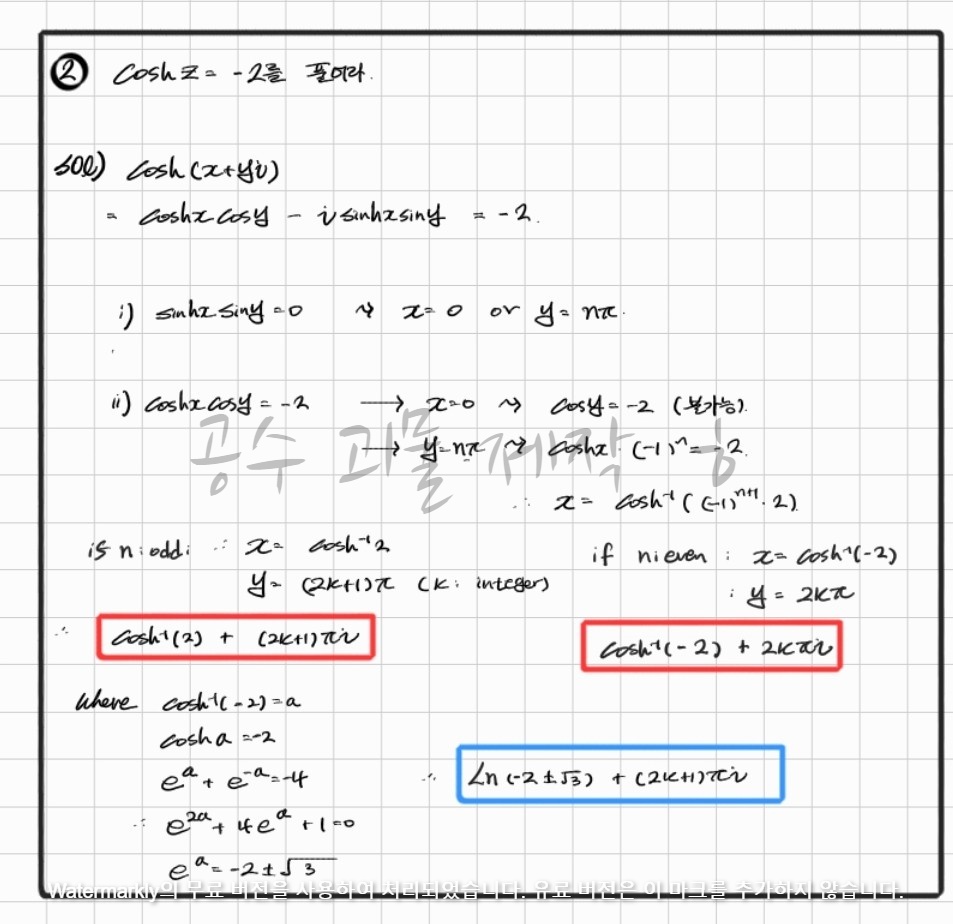 ② cosh z = -2를 풀어라.
sol) cosh(x+yi)
= coshx cosy - i sinhx siny = -2.
i) sinhx siny = 0 ⇝ x = 0 or y = nπ.
ii) coshx cosy = -2 → x=0 ⇝ cosy = -2 (불가능).
→ y=nπ ⇝ coshx · (-1)ⁿ = -2.
공수 괴물 제작
∴ x = cosh⁻¹((-1)ⁿ⁺¹·2)
if n: odd: ∴ x = cosh⁻¹2
y = (2k+1)π (k: integer)
if n: even : x = cosh⁻¹(-2)
: y = 2kπ
∴ cosh⁻¹(2) + (2k+1)πi
cosh⁻¹(-2) + 2kπi
where cosh⁻¹(-2) = a
cosh a = -2
eᵃ + e⁻ᵃ = -4
∴ Ln(-2±√3) + (2k+1)πi
∴ e²ᵃ + 4eᵃ + 1 = 0
eᵃ = -2±√3
Watermarkly의 무료 버전을 사용하여 처리되었습니다. 유료 버전은 이 마크를 추가하지 않습니다.